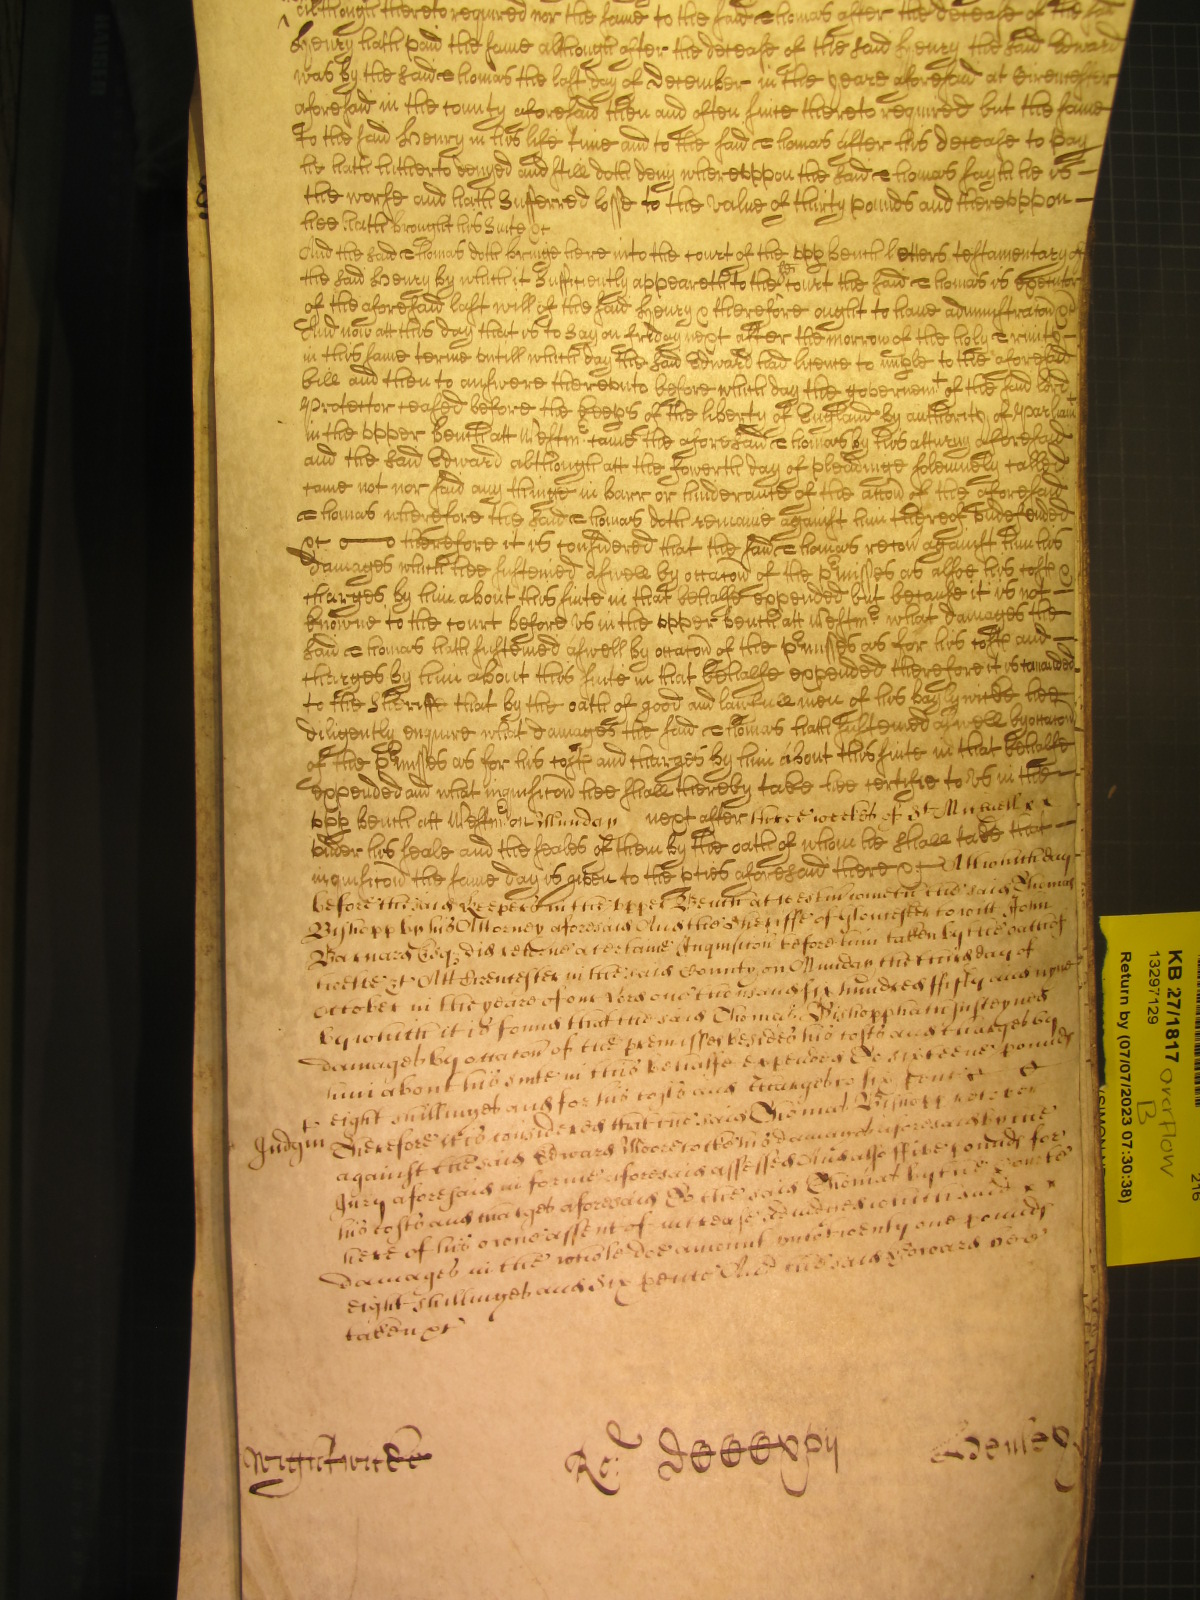 although thereto required nor the same to the said Thomas after the decease of the said
Henry hath paid the same although after the decease of the said Henry the said Edward
was by the said Thomas the last day of December in the yeare aforesaid at Cirencester
aforesaid in the county aforesaid then and often since thereto required but the same
to the said Henry in his life time and to the said Thomas after his decease to pay
he hath hitherto denyed and still doth deny whereuppon the said Thomas sayth he is
the worse and hath Suffered losse to the value of thirty pounds and thereuppon
hee hath brought his Suite &c
And the said Thomas doth bringe here into the court of the upp bench letters testamentary of
the said Henry by which it Sufficiently appeareth to the court the said Thomas is executor
of the aforesaid last will of the said Henry & therefore ought to have administracon &c
And now att this day that is to say on friday next after the morrow of the holy Trinite
in this same terme untill which day the said Edward had licence to imple to the aforesaid
bill and then to answere thereunto before which day the governemt of the said lord
Protector ceased before the keeps of the liberty of England by authority of Parliamt
in the upper bench att Westmr came the aforesaid Thomas by his atturny aforesaid
and the said Edward although att the fowerth day of pleadinge solemnely called
came not nor said any thinge in barr or hinderance of the accon of the aforesaid
Thomas wherefore the said Thomas doth remaine against him thereof undefended
&c therefore it is considered that the said Thomas recov against him his
damages which hee susteined aswell by occacon of the pmisses as alsoe his costs &
charges by him about his suite in that behalfe expended but because it is not
knowne to the court before us in the upper bench att Westmr what damages the
said Thomas hath susteined aswell by occacon of the pmisses as for his costs and
charges by him about this suite in that behalfe expended therefore it is comanded
to the Sheriffe that by the oath of good and lawfull men of his baylywicke hee
diligently enquire what damages the said Thomas hath susteined aswell by occacon
of the pmisses as for his costs and charges by him about this suite in that behalfe
expended and what inquisicon hee shall thereby take hee certifie to us in the
upp bench att Westmr on Munday next after three weekes of St Michaell
under his seale and the seales of them by the oath of whom he shall take that
inquisicon the same day is given to the pties aforesaid there &c Att which day
before the said Keepers in the upper Bench at Westm cometh the said Thomas
Bishopp by his Attorney aforesaid And the Sheriffe of Gloucester to witt John
Barnard Esqr did returne a certaine Inquisicon before him taken by the oath of
twelve &c Att Cirencester in the said County on Munday the third day of
October in the yeare of our Lord one thousand six hundred fifty and nyne
by which it is found that the said Thomas Bishopp hath susteyned
damages by occacon of the premisses besides his costs and charges by
him about his suite in this behalfe expended To sixteene pounds
eight shillinges and for his costs and charges to six pence
Judgmt Therefore it is considered that the said Thomas Bishopp recover
against the said Edward Moore his damages aforesaid by the
Jury aforesaid in forme aforesaid assessed And also five pounds for
his costs and charges aforesaid To the said Thomas by the Courte
here of his owne assent of increase adiudged which said
damages in the whole doe amount unto twenty one pounds
eight shillinges and six pence And the said Edward
taken &c
Wightwicke
Ro:
Henley
KB 27/1817 overflow
B
13297129
Return by (07/07/2023 07:30:38)
216